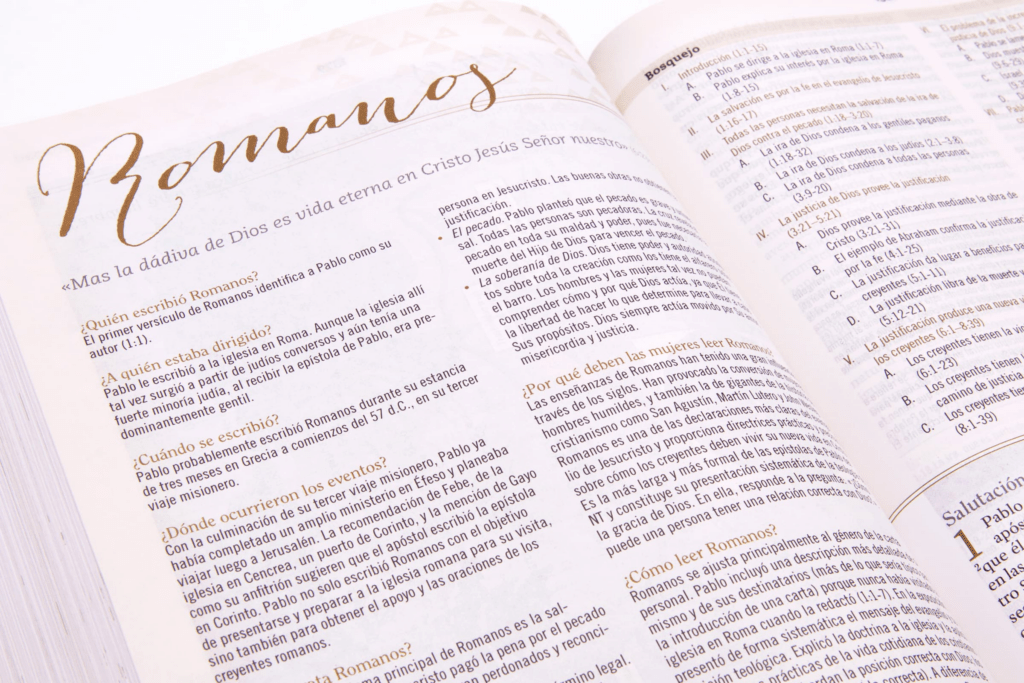 Romanos
«Mas la dádiva de Dios es vida eterna en Cristo Jesús Señor nuestro»
¿Quién escribió Romanos?
El primer versículo de Romanos identifica a Pablo como su
autor (1:1).
¿A quién estaba dirigido?
Pablo le escribió a la iglesia en Roma. Aunque la iglesia allí
tal vez surgió a partir de judíos conversos y aún tenía una
fuerte minoría judía, al recibir la epístola de Pablo, era pre-
dominantemente gentil.
¿Cuándo se escribió?
Pablo probablemente escribió Romanos durante su estancia
de tres meses en Grecia a comienzos del 57 d.C., en su tercer
viaje misionero.
¿Dónde ocurrieron los eventos?
Con la culminación de su tercer viaje misionero, Pablo ya
había completado un amplio ministerio en Éfeso y planeaba
viajar luego a Jerusalén. La recomendación de Febe, de la
iglesia en Cencrea, un puerto de Corinto, y la mención de Gayo
como su anfitrión sugieren que el apóstol escribió la epístola
en Corinto. Pablo no solo escribió Romanos con el objetivo
de presentarse y preparar a la iglesia romana para su visita,
sino también para obtener el apoyo y las oraciones de los
creyentes romanos.
Romanos?
principal de Romanos es la sal-
pagó la pena por el pecado
perdonados y reconci-
término legal.
persona en Jesucristo. Las buenas obras no
justificación.
• El pecado. Pablo planteó que el pecado es grave
sal. Todas las personas son pecadoras. La cruz
pecado en toda su maldad y poder, pues fue
muerte del Hijo de Dios para vencer el pecado.
• La soberanía de Dios. Dios tiene poder y
tos sobre toda la creación como los tiene el
el barro. Los hombres y las mujeres tal vez no
comprender cómo y por qué Dios actúa, ya
la libertad de hacer lo que determine para llevar
Sus propósitos. Dios siempre actúa movido por
misericordia y justicia.
¿Por qué deben las mujeres leer Romanos?
Las enseñanzas de Romanos han tenido una gran
través de los siglos. Han provocado la conversión de
hombres humildes, y también la de gigantes de
cristianismo como San Agustín, Martín Lutero y
Romanos es una de las declaraciones más claras del
lio de Jesucristo y proporciona directrices prácticas
sobre cómo los creyentes deben vivir su nueva vida
Es la más larga y más formal de las epístolas de Pablo
NT y constituye su presentación sistemática de la
la gracia de Dios. En ella, responde a la pregunta:
puede una persona tener una relación correcta con Dios
¿Cómo leer Romanos?
Romanos se ajusta principalmente al género de la carta
personal. Pablo incluyó una descripción más detallada
mismo y de sus destinatarios (más de lo que sería
la introducción de una carta) porque nunca había
iglesia en Roma cuando la redactó (1:1-7). En
presentó de forma sistemática el mensaje del
sición teológica. Explicó la doctrina a la iglesia y
prácticas de la vida cotidiana de los
la posición correcta con Dios
correcta). A diferencia
Bosquejo
I. Introducción (1:1-15)
A. Pablo se dirige a la iglesia en Roma (1:1-7)
B. Pablo explica su interés por la iglesia en Roma
(1:8-15)
II. La salvación es por la fe en el evangelio de Jesucristo
(1:16-17)
III. Todas las personas necesitan la salvación de la ira de
Dios contra el pecado (1:18–3:20)
A. La ira de Dios condena a los gentiles paganos
(1:18-32)
B. La ira de Dios condena a los judíos (2:1–3:8)
C. La ira de Dios condena a todas las personas
(3:9-20)
IV. La justicia de Dios provee la justificación
(3:21–5:21)
A. Dios provee la justificación mediante la obra de
Cristo (3:21-31)
B. El ejemplo de Abraham confirma la
por la fe (4:1-25)
C. La justificación da lugar a beneficios para
creyentes (5:1-11)
D. La justificación libra de la muerte
(5:12-21)
V. La justificación produce una nueva
los creyentes (6:1–8:39)
A. Los creyentes tienen la
(6:1-23)
B. Los creyentes tienen
camino de justicia
C. Los creyentes
(8:1-39)
Salutación
1 Pablo
que
en las